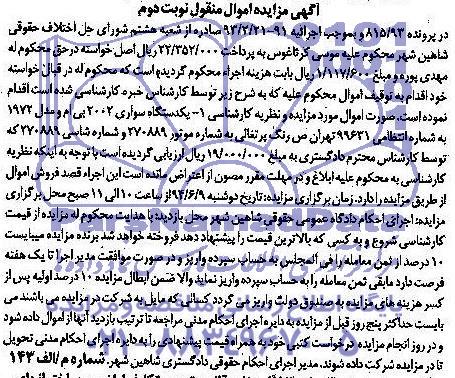 آگهی مزایده اموال منقول نوبت دوم
در پرونده ۸۱۵/۹۳ و بموجب اجرائیه ۹۱-۹۳/۲/۲۱ صادره از شعبه هشتم شورای حل اختلاف حقوقی
شاهین شهر محکوم علیه موسی کرناغوس به پرداخت ۲۲/۳۵۲/۰۰۰ ریال اصل خواسته در حق محکوم له
مهدی پوره و مبلغ ۱/۱۱۷/۶۰۰ ریال بابت هزینه اجراء محکوم گردیده است که محکوم له در قبال خواسته
خود اقدام به توقیف اموال محکوم علیه که به شرح زیر توسط کارشناس خبره کارشناسی شده است اقدام
نموده است. صورت اموال مورد مزایده و نظریه کارشناسی ۱- یکدستگاه سواری ۲۰۰۲ بی ام و مدل ۱۹۷۲
به شماره انتظامی ۹۹۶۳۱ تهران ص رنگ پرتقالی به شماره موتور ۲۷۰۸۸۹ و شماره شاسی ۲۷۰۸۸۹ که
توسط کارشناس محترم دادگستری به مبلغ ۱۹/۰۰۰/۰۰۰ ریال ارزیابی گردیده است با توجه به اینکه نظریه
کارشناسی به محکوم علیه ابلاغ و در مهلت مقرر مصون از اعتراض مانده است این اجراء قصد فروش اموال
از طریق مزایده را دارد. زمان برگزاری مزایده: تاریخ دوشنبه ۹۴/۶/۹ از ساعت ۱۰ الی ۱۱ صبح محل برگزاری
مزایده: اجرای احکام دادگاه عمومی حقوقی شاهین شهر محل بازدید: با هدایت محکوم له مزایده از قیمت
کارشناسی شروع و به کسی که بالاترین قیمت را پیشنهاد دهد فروخته خواهد شد برنده مزایده میبایست
۱۰ درصد از ثمن معامله را فی المجلس به حساب سپرده واریز و در صورت موافقت مدیر اجرا تا یک هفته
فرصت دارد مابقی ثمن معامله را به حساب سپرده واریز نماید والا ضمن ابطال مزایده ۱۰ درصد اولیه پس از
کسر هزینه های مزایده به صندوق دولت واریز می گردد کسانی که مایل به شرکت در مزایده می باشند می
بایست حداکثر پنج روز قبل از مزایده به دایره اجرای احکام مدنی مراجعه تا ترتیب بازدید آنها از اموال داده شود
و در روز انجام مزایده درخواست کتبی خود به همراه قیمت پیشنهادی را به دایره اجرای احکام مدنی تحویل
تا در مزایده شرکت داده شوند. مدیر اجرای احکام حقوقی دادگستری شاهین شهر. شماره م/الف ۱۴۲